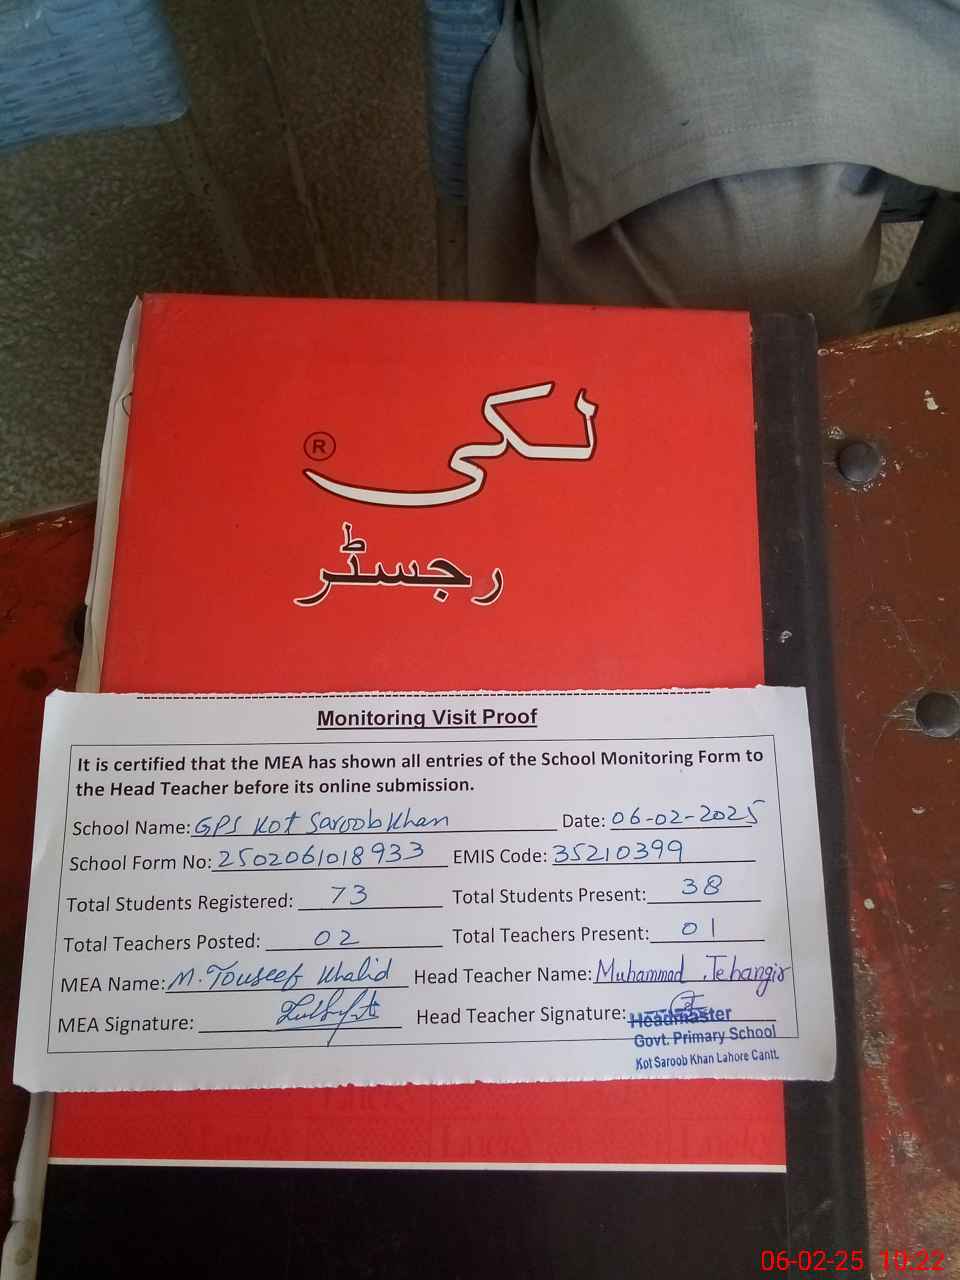 لکی
®
رجسٹر
Monitoring Visit Proof
It is certified that the MEA has shown all entries of the School Monitoring Form to
the Head Teacher before its online submission.
School Name: GPS Kot Saroob Khan Date: 06-02-2025
School Form No: 2502061018933 EMIS Code: 35210399
Total Students Registered: 73 Total Students Present: 38
Total Teachers Posted: 02 Total Teachers Present: 01
MEA Name: M. Touseef Khalid Head Teacher Name: Muhammad Jehangir
MEA Signature: Head Teacher Signature:
Headmaster
Govt. Primary School
Kot Saroob Khan Lahore Cantt.
06-02-25 10:22